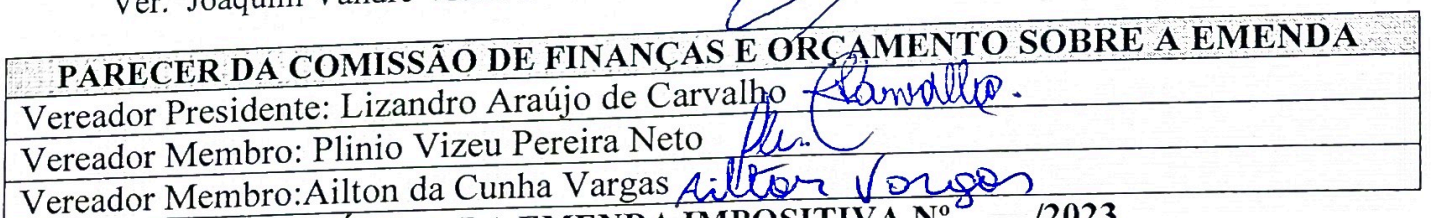 Ver. Joaquim
PARECER DA COMISSÃO DE FINANÇAS E ORÇAMENTO SOBRE A EMENDA
Vereador Presidente: Lizandro Araújo de Carvalho
Vereador Membro: Plinio Vizeu Pereira Neto
Vereador Membro:Ailton da Cunha Vargas Ailton Vargas
EMENDA IMPOSITIVA Nº /2023